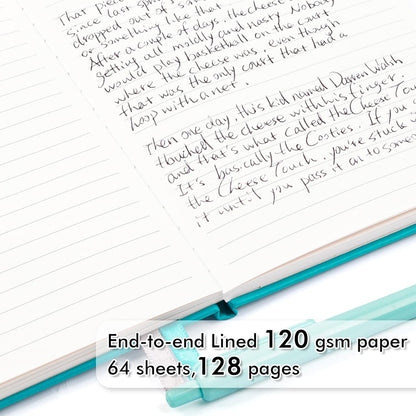 That piece
since last spr
dropped out of s
or something like that
After a couple of days, the cheese
getting all moldly and nasty. Nobody
would play basketball on the court
where the cheese was, even though
that was the only court that had a
loop with a net.
Then one day, this kid named Darren Walsh
touched the cheese with his finger,
and that's what called the Cheese Touc
It's basically the Cooties. If you
the Cheese Touch, you're stuck w
it until you pass it on to someon
End-to-end Lined 120 gsm paper
64 sheets,128 pages